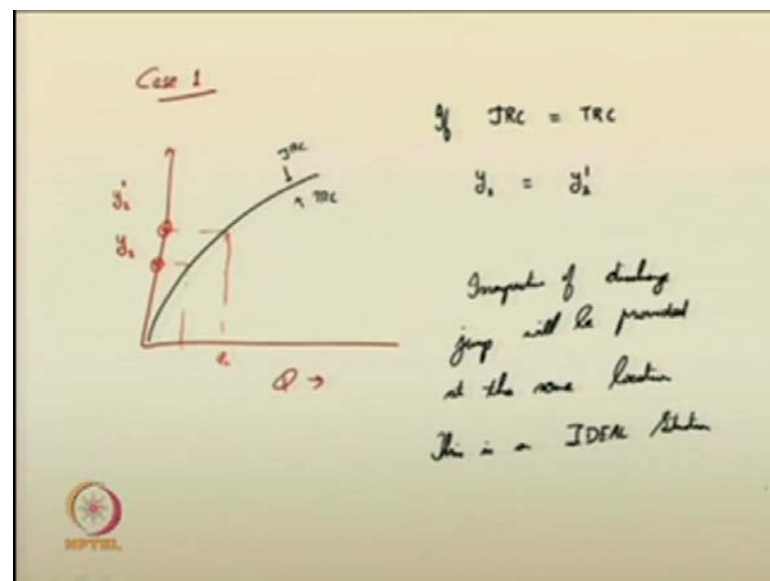 Case 1
If JRC = TRC
y₂ = y₂'
JRC
TRC
y₂'
y₂
Q →
Irrespective of discharge
jump will be provided
at the same location
This is a IDEAL
NPTEL